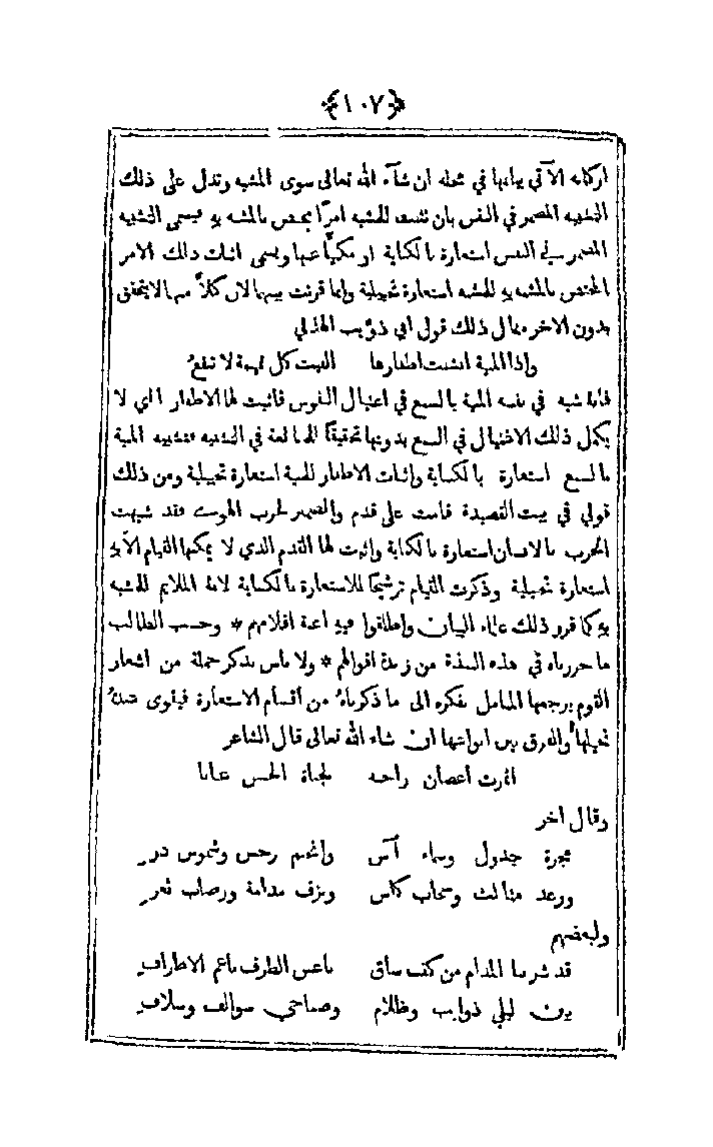 ﴿١٠٧﴾
اركانه الآتي بيانها في محله ان شآء الله تعالى سوى المشبه وتدل على ذلك
التشبيه المضمر في النفس بان تثبت للمشبه امرًا يختص بالمشبه به فيسمى التشبيه
المضمر في النفس استعارة بالكناية او مكنيًا عنها ويسمى اثبات ذلك الامر
المختص بالمشبه به للمشبه استعارة تخييلية وانما قرنت بينهما لان كلاً منهما لا يتحقق
بدون الاخر مثال ذلك قول ابي ذؤيب الهذلي
واذا المنية انشبت اظفارها الفيت كل تميمة لا تنفعُ
فانه شبه في نفسه المنية بالسبع في اغتيال النفوس فاثبت لها الاظفار التي لا
يكمل ذلك الاغتيال في السبع بدونها تحقيقًا للمبالغة في التشبيه فتشبيه المنية
بالسبع استعارة بالكناية واثبات الاظفار للمنية استعارة تخييلية ومن ذلك
قولي في بيت القصيدة قامت على قدم والضمير لحرب الهوى فقد شبهت
الحرب بالانسان استعارة بالكناية واثبت لها القدم الذي لا يمكنها القيام الا به
استعارة تخييلية وذكرت القيام ترشيحًا للاستعارة بالكناية لانه الملايم للمشبه
به كما قرر ذلك علماء البيان واطلقوا فيه اعنة اقلامهم * وحسب الطالب
ما حررناه في هذه النبذة من زبدة اقوالهم * ولا باس بذكر جملة من اشعار
القوم يرجعها المتامل بفكره الى ما ذكرناهُ من أقسام الاستعارة فيقوى
والفرق بين انواعها ان شاء الله تعالى قال الشاعر
اثمرت أغصان راحته لجناة الحسن عنابا
وقال اخر
مجرة جدول وسماء آس وانجم نرجس وشموس
ورعد مثالث وسحاب كاس وبرق مدامة ورضاب ثغرِ
ولبعضهم
قد شربنا المدام من كف ساق ناعس الطرف ناعم الاطرافِ
بين ليلي ذوايب وظلام وصباحي سوالف وسلافِ